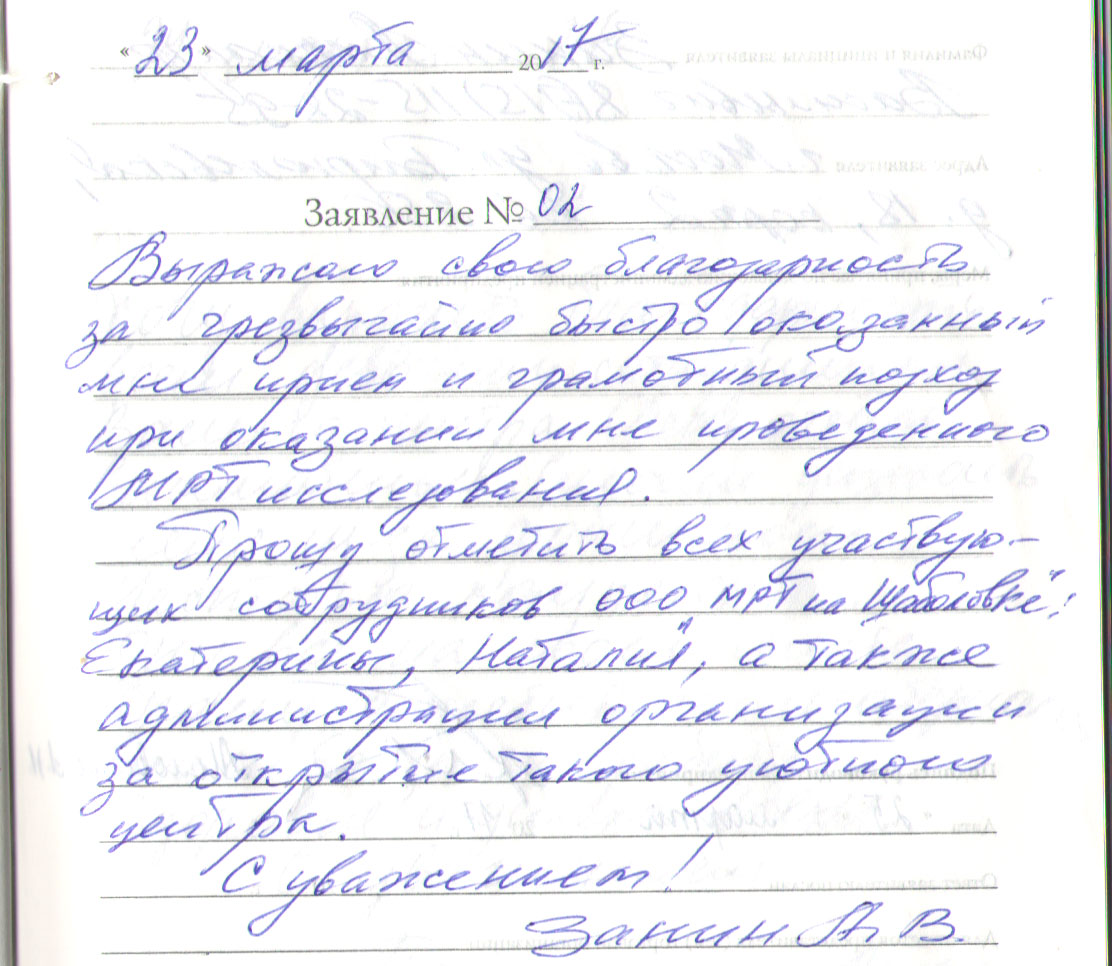 «23» марта 2017 г.
Заявление № 02
Выражаю свою благодарность
за чрезвычайно быстро оказанный
мне прием и грамотный подход
при оказании мне проведенного
МРТ исследования.
Прошу отметить всех участвую-
щих сотрудников ООО "МРТ на Шаболовке":
Екатерины, Наталия, а также
администрации организации
за открытие такого уютного
центра.
С уважением!
Занин А. В.